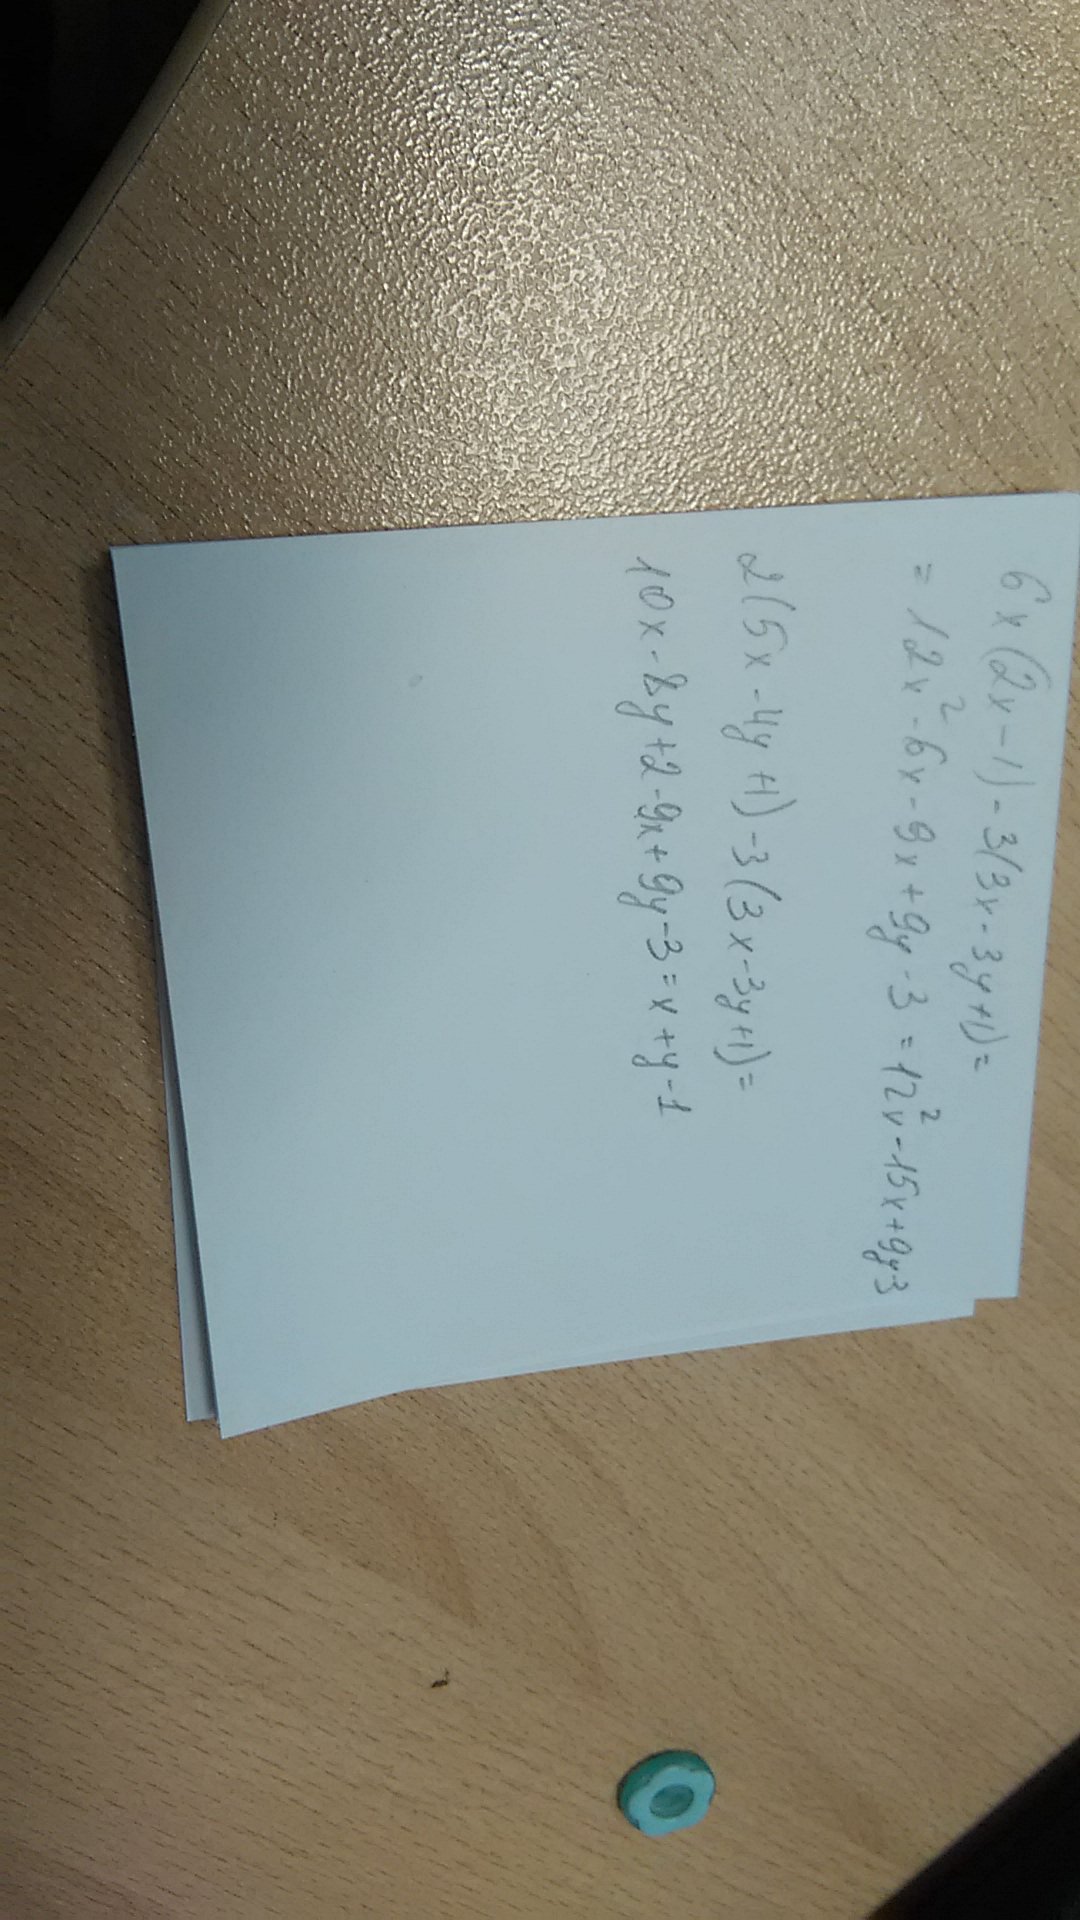 6x(2x-1)-3(3x-3y+1)=
=12x²-6x-9x+9y-3=12x²-15x+9y-3
2(5x-4y+1)-3(3x-3y+1)=
10x-8y+2-9x+9y-3=x+y-1